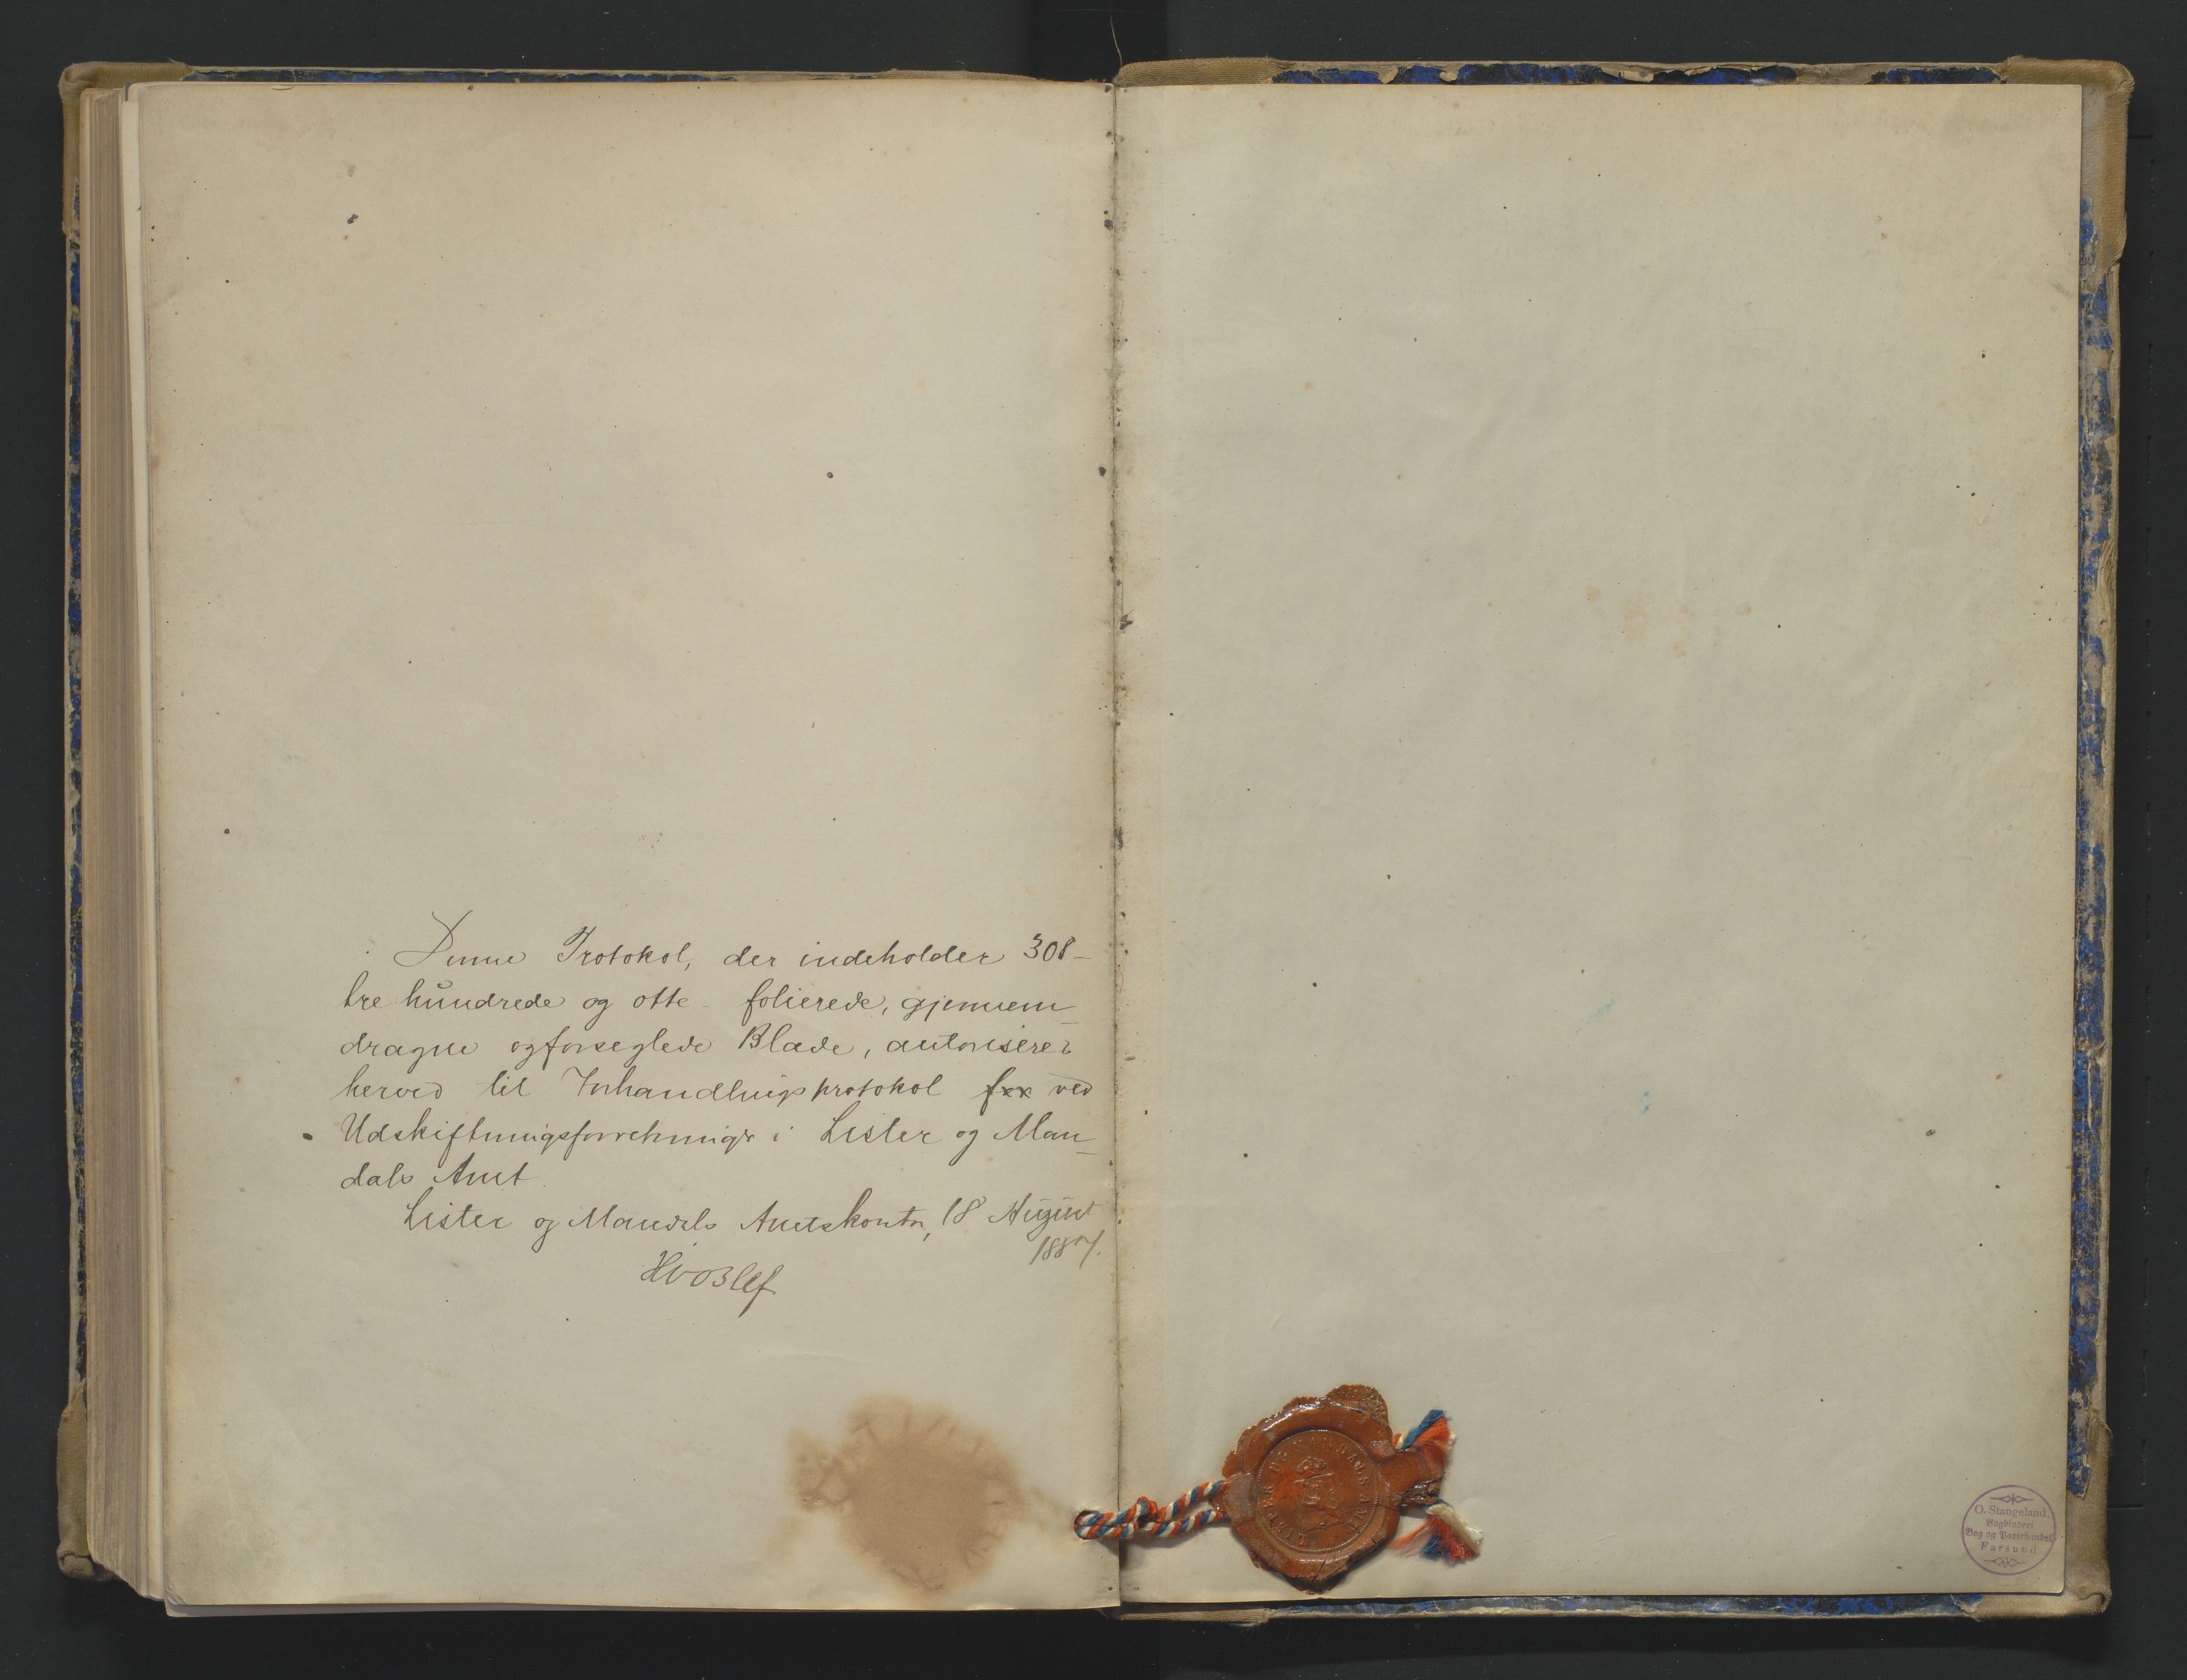 Denne Protokol, der indeholder 308 –
tre hundrede og otte – folierede, gjennem–
dragne og forseglede Blade, autoriseres
herved til Forhandlingsprotokol for ved
Udskiftningsforretninger i Lister og Man–
dals Amt.
Lister og Mandals Amtskontor, 18 August
1887.
Hvoslef
LISTER OG MANDALS AMT
O. Stangeland.
Bogbinderi
Bog og Papirhandel
Farsund